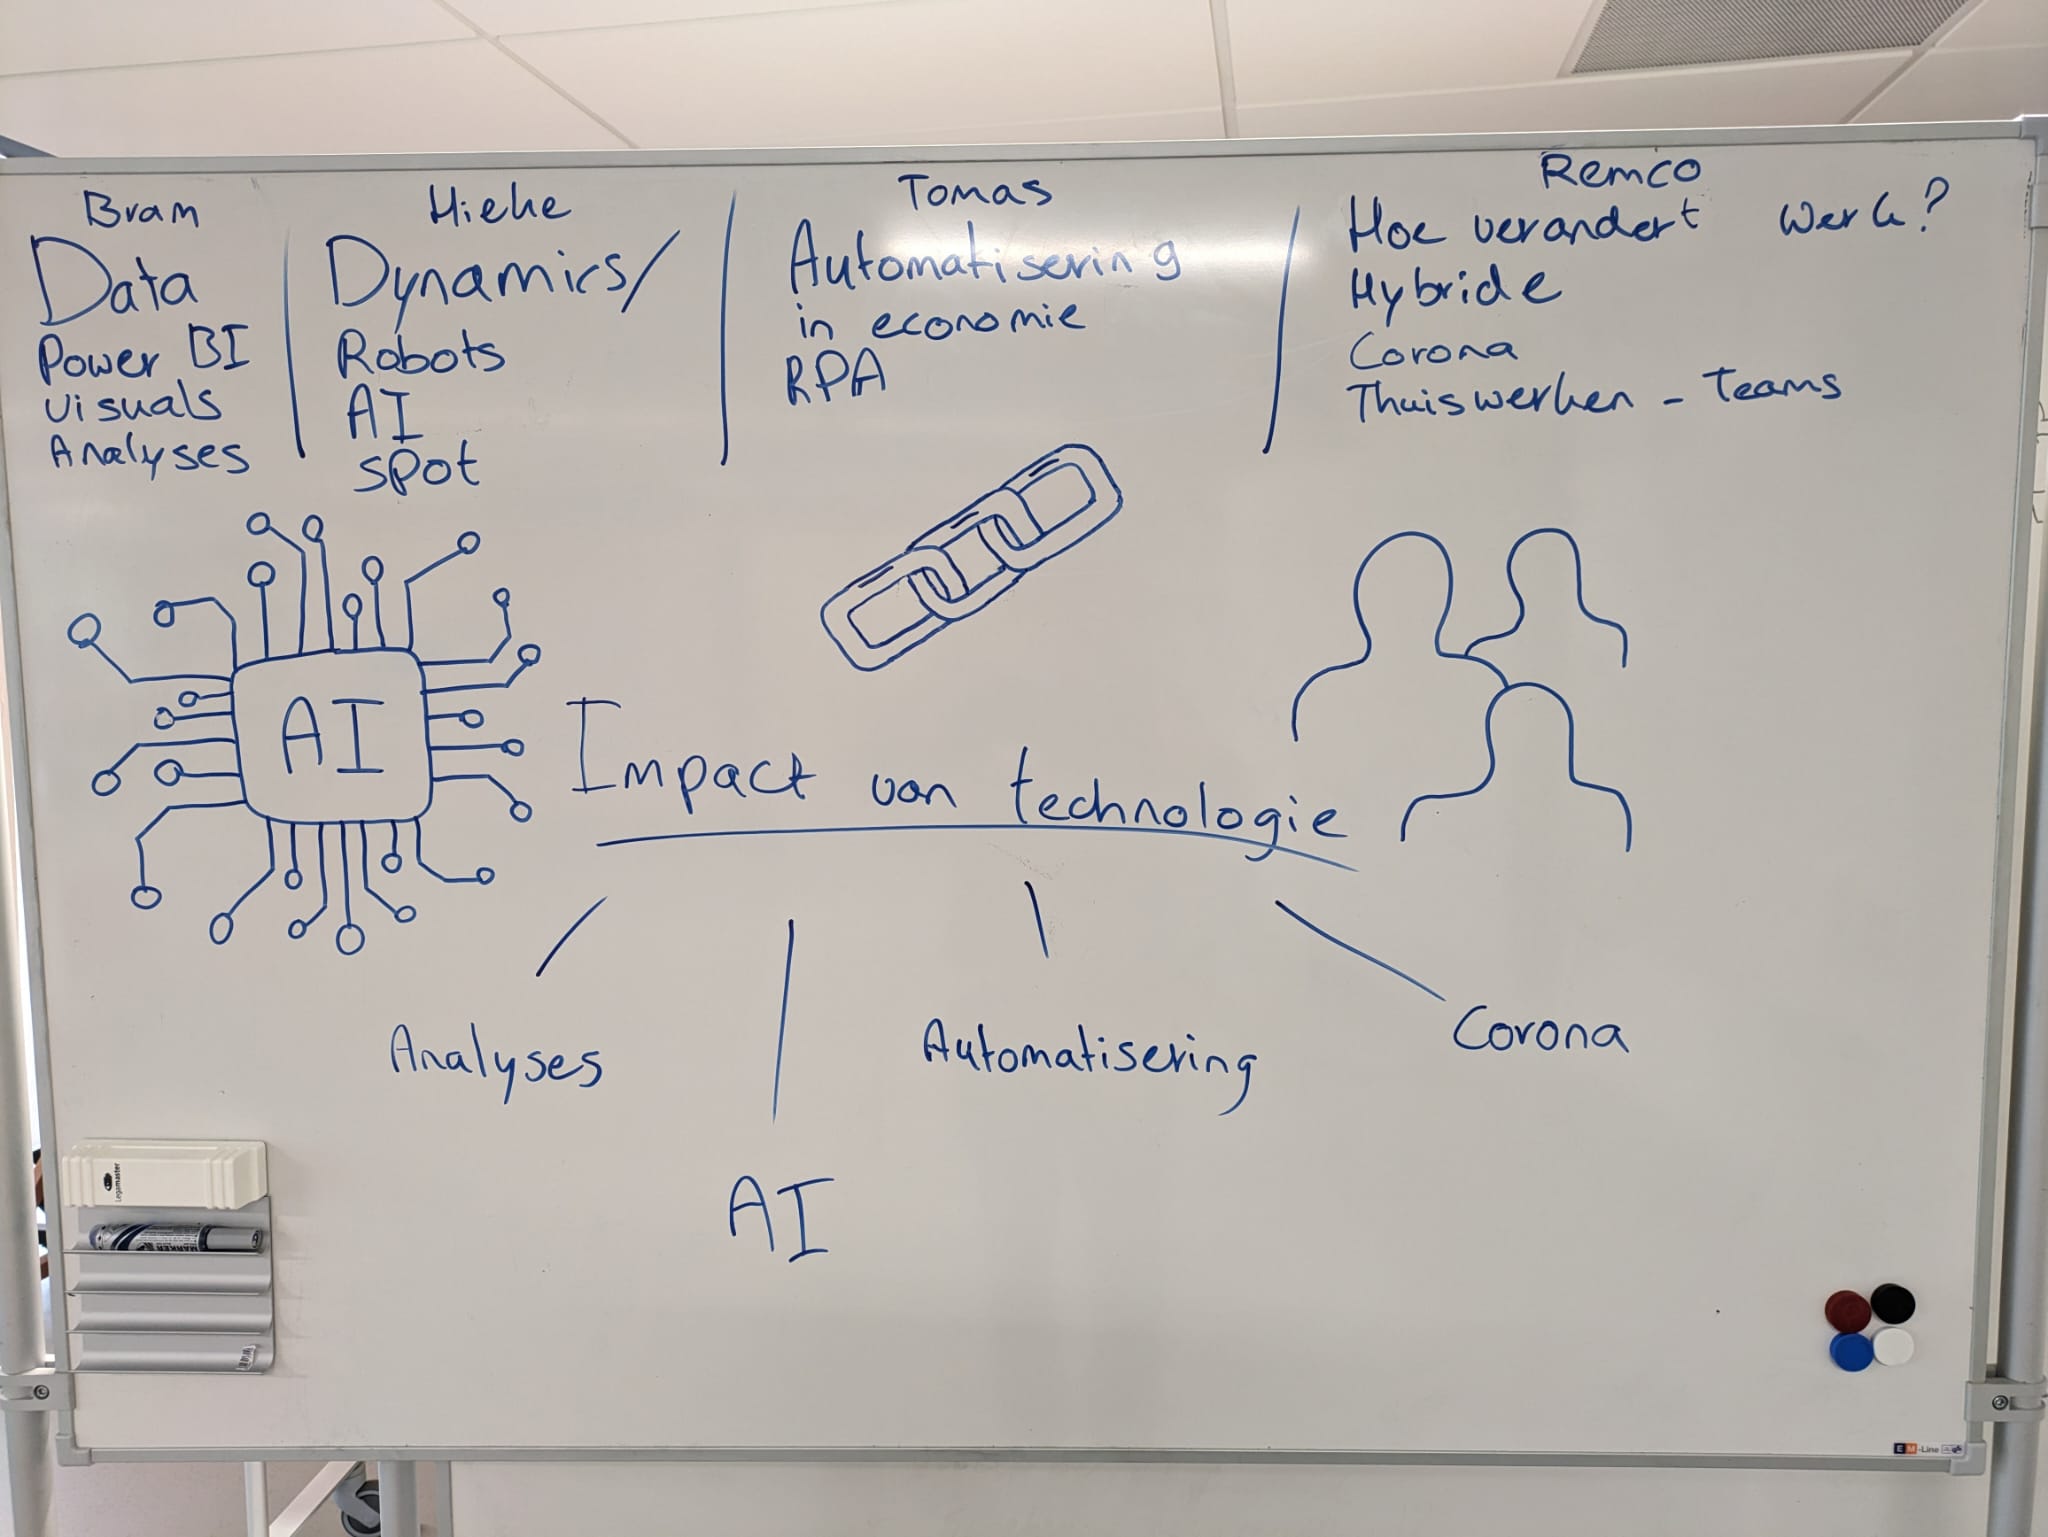 Bram
Data
Power BI
visuals
Analyses
Hieke
Dynamics/
Robots
AI
SPot
Tomas
Automatisering
in economie
RPA
Remco
Hoe verandert werk?
Hybride
Corona
Thuiswerken - Teams
AI
Impact van technologie
Analyses
AI
Automatisering
Corona
Legamaster
MARKER
EM-Line